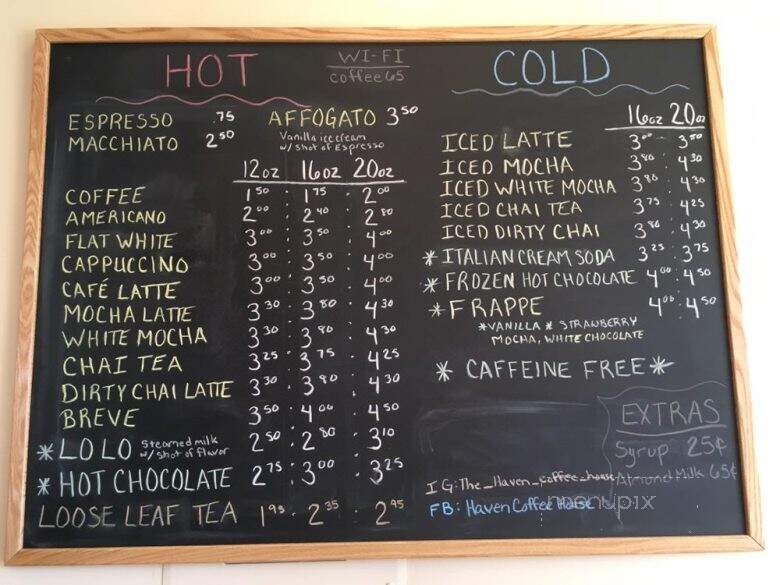 HOT
WI-FI
coffee65
COLD
ESPRESSO .75
MACCHIATO 2 50
AFFOGATO 3 50
Vanilla ice cream
w/ shot of Espresso
12oz 16oz 20oz
COFFEE 1 50 1 75 2 00
AMERICANO 2 00 2 40 2 80
FLAT WHITE 3 00 3 50 4 00
CAPPUCCINO 3 00 3 50 4 00
CAFÉ LATTE 3 00 3 50 4 00
MOCHA LATTE 3 30 3 80 4 30
WHITE MOCHA 3 30 3 80 4 30
CHAI TEA 3 25 3 75 4 25
DIRTY CHAI LATTE 3 30 3 80 4 30
BREVE 3 50 4 00 4 50
*LOLO Steamed milk w/ shot of flavor 2 50 2 80 3 10
*HOT CHOCOLATE 2 75 3 00 3 25
LOOSE LEAF TEA 1 95 2 35 2 95
16oz 20oz
ICED LATTE 3 00 3 50
ICED MOCHA 3 80 4 30
ICED WHITE MOCHA 3 80 4 30
ICED CHAI TEA 3 75 4 25
ICED DIRTY CHAI 3 80 4 30
*ITALIAN CREAM SODA 3 25 3 75
*FROZEN HOT CHOCOLATE 4 00 4 50
*FRAPPE 4 00 4 50
*VANILLA * STRAWBERRY
MOCHA, WHITE CHOCOLATE
* CAFFEINE FREE *
EXTRAS
Syrup 25¢
Almond Milk 65¢
IG: The_Haven_coffee_house
FB: Haven Coffee House
menupix